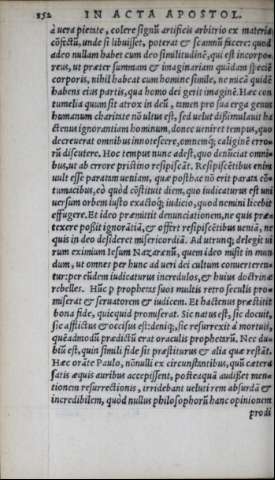 252 IN ACTA APOSTOL.
à uera pietate, colere signũ artificis arbitrio ex materia
cõfectũ, unde si libuisset, poterat & scamnũ facere: quod
adeo nullam habet cum deo similitudinẽ, qui est incorpo-
reus, ut præter summam & imaginariam quãdam speciẽ
corporis, nihil habeat cum homine simile, ne mica quidẽ
habens eius partis, qua homo dei gerit imaginẽ. Hæc con
tumelia quum sit atrox in deũ, tamen pro sua erga genus
humanum charitate nõ ultus est, sed uelut dissimulauit ha
ctenus ignorantiam hominum, donec ueniret tempus, quo
decreuerat omnibus innotescere, omnemq; caliginẽ erro-
rũ discutere. Hoc tempus nunc adest, quo denũciat omni-
bus, ut ab errore pristino resipiscãt. Resipiscẽtibus enim
uult esse paratam ueniam, quæ posthac nõ erit parata cõ-
tumacibus, eò quòd cõstituit diem, quo iudicaturus est uni
uersum orbem iusto exactoq; iudicio, quod nemini licebit
effugere. Et ideo præmittit denunciationem, ne quis præ-
texere possit ignorãtiã, & offert resipiscẽtibus ueniã, ne
quis in deo desideret misericordiã. Ad utrunq; delegit ui
rum eximium Iesum Nazarenũ, quem ideo misit in mun
dum, ut omnes per hunc ad ueri dei cultum conuerteren-
tur: per eũdem iudicaturus incredulos, & huius doctrinæ
rebelles. Hũc p prophetas suos multis retro seculis pro-
miserat & seruatorem & iudicem. Et hactenus præstitit
bona fide, quicquid promiserat. Sic natus est, sic docuit,
sic afflictus & occisus est: deniq;, sic resurrexit à mortuis,
quẽadmodũ prædictũ erat oraculis prophetarũ. Nec du-
biũ est, quin simili fide sit præstiturus & alia quæ restãt.
Hæc orãte Paulo, nõnulli ex circunstãtibus, quũ cætera
satis æquis auribus accepissent, posteaquã audisset men-
tionem resurrectionis, irridebant ueluti rem absurdã &
incredibilem, quòd nullus philosophorũ hanc opinionem
prodi